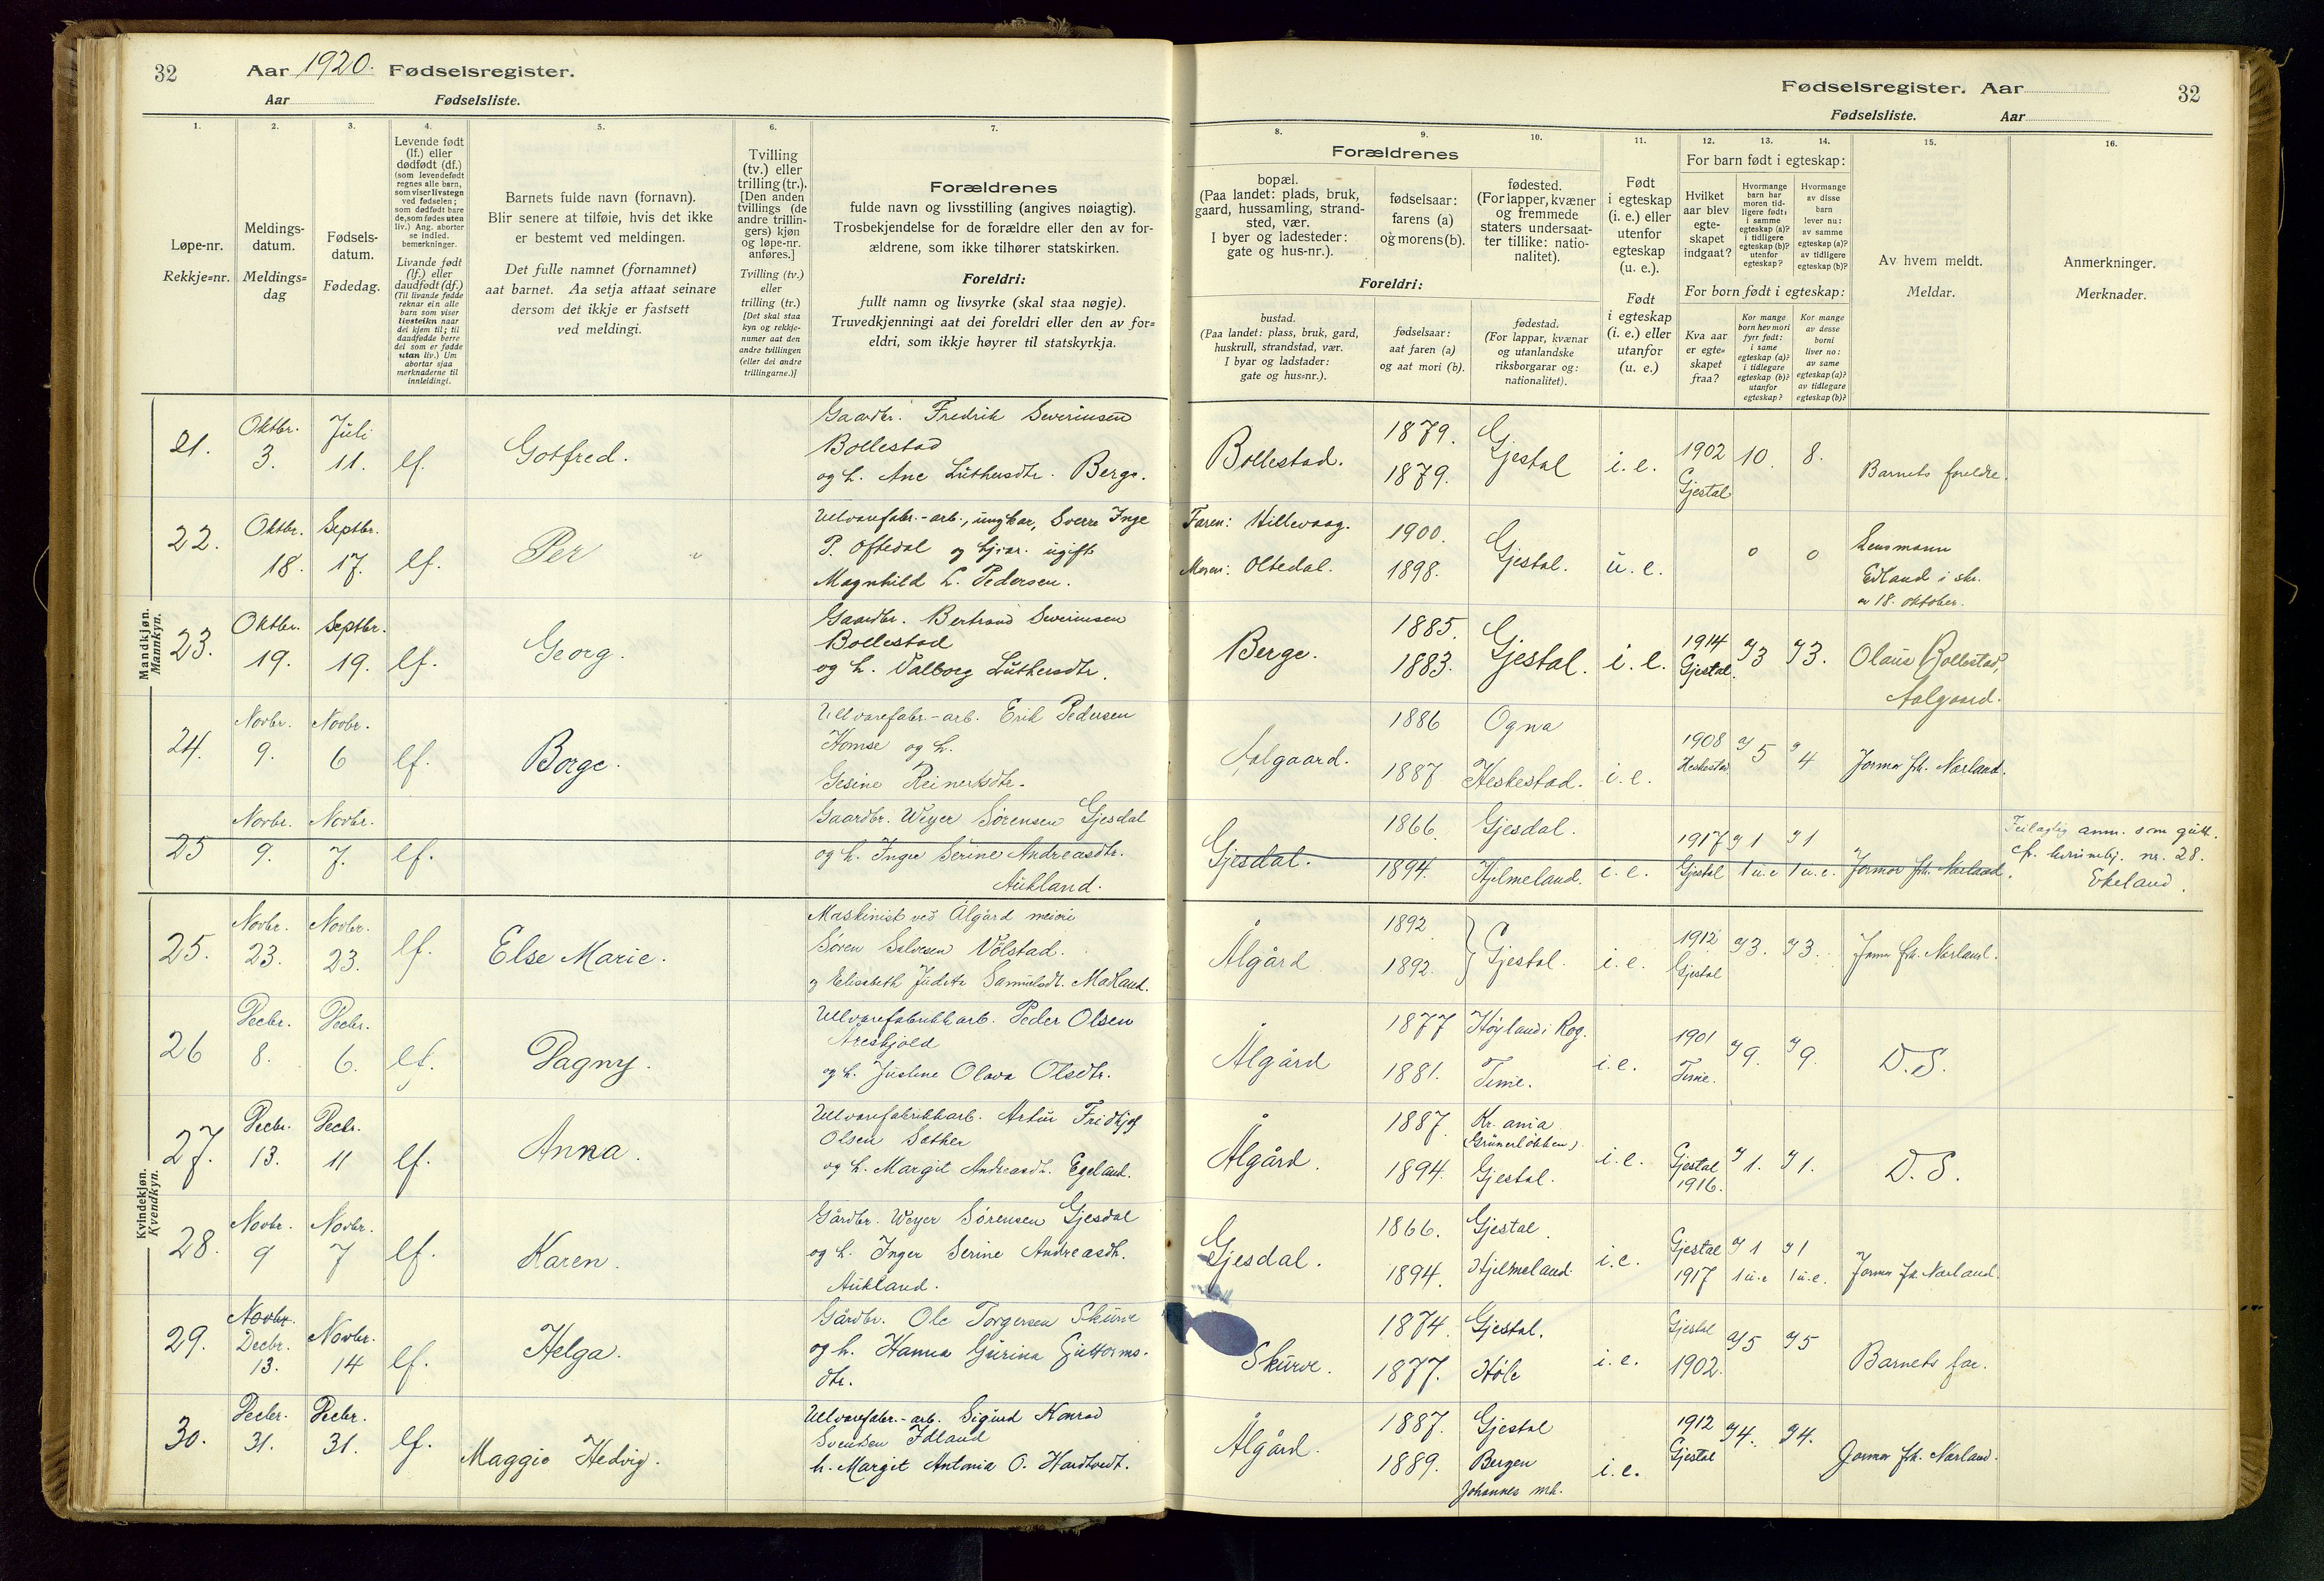 32 Aar 1920. Fødselsregister.
Aar Fødselsliste.
Fødselsregister. Aar 32
Fødselsliste. Aar
1. 2. 3. 4. 5. 6. 7. 8. 9. 10. 11. 12. 13. 14. 15. 16.
Løpe-nr.
Rekkje=nr.
Meldings-
datum.
Meldings=
dag
Fødsels-
datum.
Fødedag.
Levende født
(lf.) eller
dødfødt (df.)
(som levendefødt
regnes alle barn,
som viser livstegn
ved fødselen;
som dødfødt bare
de, som fødes uten
liv.) Ang. aborter
se indled.
bemerkninger.
Livande født
(lf.) eller
daudfødt (df.)
(Til livande fødde
reknar ein alle
barn som viser
livsteikn naar
dei kjem til; til
daudfødde berre
dei som er fødde
utan liv.) Um
abortar sjaa
merknaderne til
innleidingi.
Barnets fulde navn (fornavn).
Blir senere at tilføie, hvis det ikke
er bestemt ved meldingen.
Det fulle namnet (fornamnet)
aat barnet. Aa setja attaat seinare
dersom det ikkje er fastsett
ved meldingi.
Tvilling
(tv.) eller
trilling (tr.).
[Den anden
tvillings (de
andre trillin-
gers) kjøn
og løpe-nr.
anføres.]
Tvilling (tv.)
eller
trilling (tr.)
[Det skal staa
kyn og rekkje-
numer aat den
andre tvillingen
(eller dei andre
trillingarne.)]
Forældrenes
fulde navn og livsstilling (angives nøiagtig).
Trosbekjendelse for de forældre eller den av for-
ældrene, som ikke tilhører statskirken.
Foreldri:
fullt namn og livsyrke (skal staa nøgje).
Truvedkjenningi aat dei foreldri eller den av for=
eldri, som ikkje høyrer til statskyrkja.
Forældrenes
bopæl.
(Paa landet: plads, bruk,
gaard, hussamling, strand-
sted, vær.
I byer og ladesteder:
gate og hus-nr.).
fødselsaar:
farens (a)
og morens (b).
fødested.
(For lapper, kvæner
og fremmede
staters undersaat-
ter tillike: natio-
nalitet).
Foreldri:
bustad.
(Paa landet: plass, bruk, gard,
huskrull, strandstad, vær.
I byar og ladstader:
gate og hus=nr.).
fødselsaar:
aat faren (a)
og aat mori (b).
fødestad.
(For lappar, kvænar
og utanlandske
riksborgarar og:
nationalitet).
Født
i egteskap
(i. e.) eller
utenfor
egteskap
(u. e.).
Født
i egteskap
(i. e.) eller
utanfor
(u. e.)
For barn født i egteskap:
Hvilket
aar blev
egte-
skapet
indgaat?
Hvormange
barn har
moren tid-
ligere født:
i samme
egteskap (a)?
i tidligere
egteskap (b)?
utenfor
egteskap?
Hvormange
av disse
barn
lever nu:
av samme
egteskap (a)?
av tidligere
egteskap (b)?
For born født i egteskap:
Kva aar
er egte=
skapet
fraa?
Kor mange
born hev mori
fyrr født:
i same
egteskap (a)?
i tidlegare
egteskap (b)?
utanfor
egteskap?
Kor mange
av desse
borni
liver no:
av same
egteskap (a)?
av tidlegare
egteskap (b)?
Av hvem meldt.
Meldar.
Anmerkninger.
Merknader.
Mandkjøn.
Mannkyn.
21. Oktbr. 3. Juli 11. lf. Gotfred.
Gaardbr. Fredrik Severinsen
Bollestad
og h. Ane Luthersdtr. Berge.
Bollestad. 1879. 1879. Gjestal i. e. 1902 Gjestal 10. 8. Barnets foreldre.
22. Oktbr. 18. Septbr. 17. lf. Per
Uldvarefabr.-arb., ungkar, Sverre Inge
P. Oftedal og tj.kar. ugift
Magnhild L. Pedersen.
Faren: Hillevaag. Moren: Oltedal. 1900. 1898. Gjestal. u. e. 0 0
Lensmann
Edland i skr.
av 18. oktober.
23. Oktbr. 19. Septbr. 19. lf. Georg.
Gaardbr. Bertrand Severinsen
Bollestad
og h. Valborg Luthersdtr.
Berge. 1885. 1883. Gjestal. i. e. 1914 Gjestal. a) 3 a) 3. Olaus Bollestad, Aalgaard.
24. Novbr. 9. Novbr. 6 lf. Borge.
Uldvarefabr.-arb. Erik Pedersen
Homse og h.
Gesine Reinertsdtr.
Aalgaard. 1886 1887 Ogna Heskestad. i. e. 1908 Heskestad a) 5 a) 4 Jormor frk. Nærland.
25 Novbr. 9. Novbr. 7. lf.
Gaardbr. Weyer Sørensen Gjesdal
og h. Inger Serine Andreasdtr.
Aukland.
Gjesdal. 1866. 1894. Gjesdal. Hjelmeland. i. e. 1917 Gjestal a) 1 1 u. e a) 1 1 u. e. Jormor frk. Nærland.
Feilagtig anm. som gutt.
cfr. kvinnekj. nr. 28.
Ekeland.
Kvindekjøn.
Kvendkyn.
25. Novbr. 23. Novbr. 23. lf. Else Marie.
Maskinist ved Ålgård meieri
Sören Salvesen Völstad.
og Elisabeth Judita Samuelsdt. Madland.
Ålgård 1892 1892. Gjestal. i. e. 1912 Gjestal a) 3. a) 3. Jorm. frk. Nærland.
26 Decbr. 8. Decbr. 6. lf. Dagny.
Ullvarefabrikkarb. Peder Olsen
Areskjold
og h. Justine Olava Olsdtr.
Ålgård 1877 1881. Höyland i Rog. Time. i. e. 1901 Time. a) 9. a) 9. D. S.
27. Decbr. 13. Decbr. 11 lf. Anna.
Ullvarefabrikkarb. Artur Fridtjof
Olsen Sæther
og h. Margit Andreasdt. Egeland.
Ålgård. 1887. 1894. Kr. ania (Grünerlökken). Gjestal. i. e. Gjestal 1916. a) 1. a) 1. D. S.
28. Novbr. 9 Novbr. 7 lf. Karen.
Gårdbr. Weyer Sörensen Gjesdal
og h. Inger Serine Andreasdt.
Aukland.
Gjesdal. 1866. 1894. Gjestal. Hjelmeland. i. e. Gjestal 1917 a) 1 1 u. e a) 1 1 u. e. Jormor frk. Nærland.
29. Novbr. Decbr. 13. Novbr. 14 lf. Helga.
Gårdbr. Ole Torgersen Skurve
og h. Hanna Gurina Guttorms-
dtr.
Skurve. 1874. 1877. Gjestal. Höle i. e. Gjestal 1902. a) 5 a) 5 Barnets far.
30. Decbr. 31. Decbr. 31. lf. Maggie Hedvig.
Ullvarefabr.-arb. Sigurd Konrad
Svendsen Edland
h. Margit Antonia O. Hardtvedt.
Ålgård. 1887. 1889. Gjestal Bergen Johannes mh. i. e. 1912 Gjestal a) 4. a) 4. Jormor frk. Nærland.